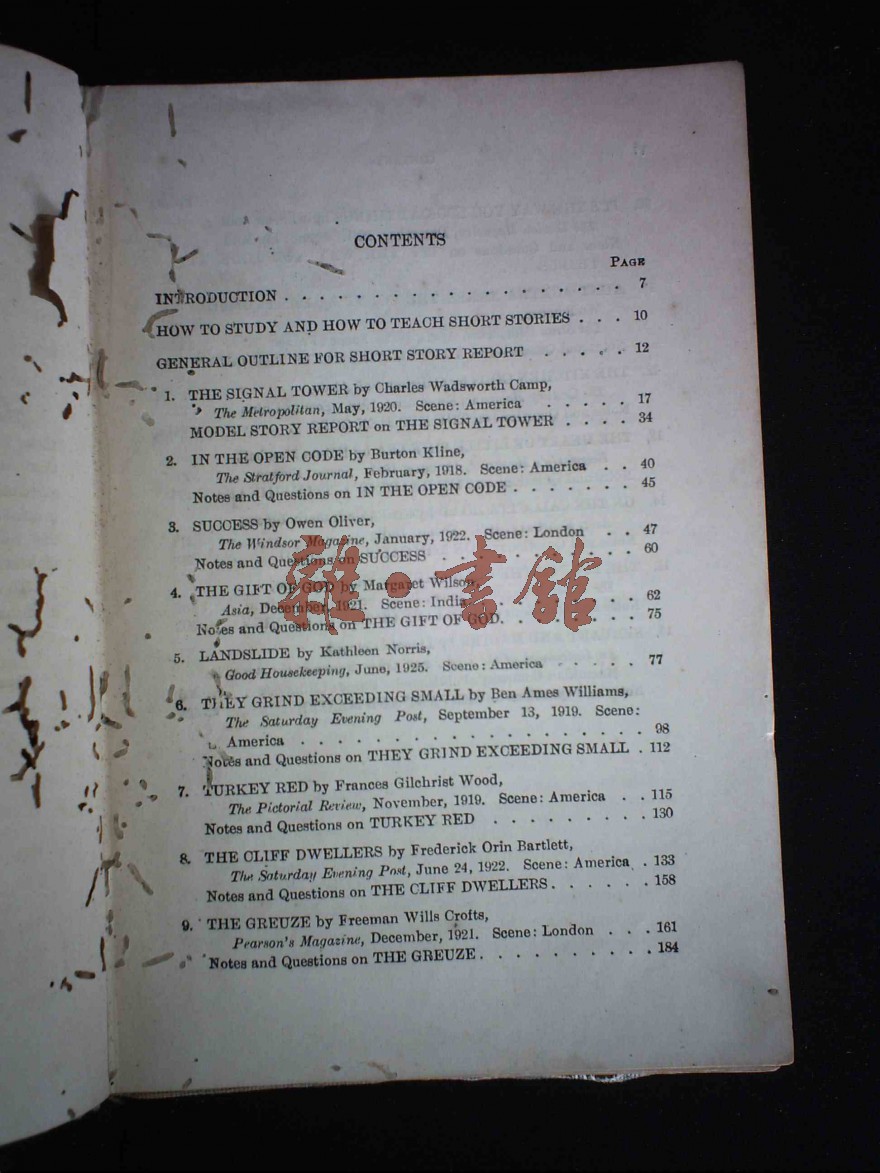 CONTENTS
PAGE
INTRODUCTION . . . . . . . . . . . . . . . . . . . 7
HOW TO STUDY AND HOW TO TEACH SHORT STORIES . . . 10
GENERAL OUTLINE FOR SHORT STORY REPORT . . . . . 12
1. THE SIGNAL TOWER by Charles Wadsworth Camp,
The Metropolitan, May, 1920. Scene: America . . . . . . 17
MODEL STORY REPORT on THE SIGNAL TOWER . . . . 34
2. IN THE OPEN CODE by Burton Kline,
The Stratford Journal, February, 1918. Scene: America . . 40
Notes and Questions on IN THE OPEN CODE . . . . . . . 45
3. SUCCESS by Owen Oliver,
The Windsor Magazine, January, 1922. Scene: London . . 47
Notes and Questions on SUCCESS . . . . . . . . . . . 60
4. THE GIFT OF GOD by Margaret Wilson,
Asia, December, 1921. Scene: India . . . . . . . . . 62
Notes and Questions on THE GIFT OF GOD. . . . . . . 75
雜·書館
5. LANDSLIDE by Kathleen Norris,
Good Housekeeping, June, 1925. Scene: America . . . . . 77
6. THEY GRIND EXCEEDING SMALL by Ben Ames Williams,
The Saturday Evening Post, September 13, 1919. Scene:
America . . . . . . . . . . . . . . . . . . . 98
Notes and Questions on THEY GRIND EXCEEDING SMALL . 112
7. TURKEY RED by Frances Gilchrist Wood,
The Pictorial Review, November, 1919. Scene: America . . 115
Notes and Questions on TURKEY RED . . . . . . . . . 130
8. THE CLIFF DWELLERS by Frederick Orin Bartlett,
The Saturday Evening Post, June 24, 1922. Scene: America . 133
Notes and Questions on THE CLIFF DWELLERS . . . . . . 158
9. THE GREUZE by Freeman Wills Crofts,
Pearson's Magazine, December, 1921. Scene: London . . . 161
Notes and Questions on THE GREUZE . . . . . . . . . . 184